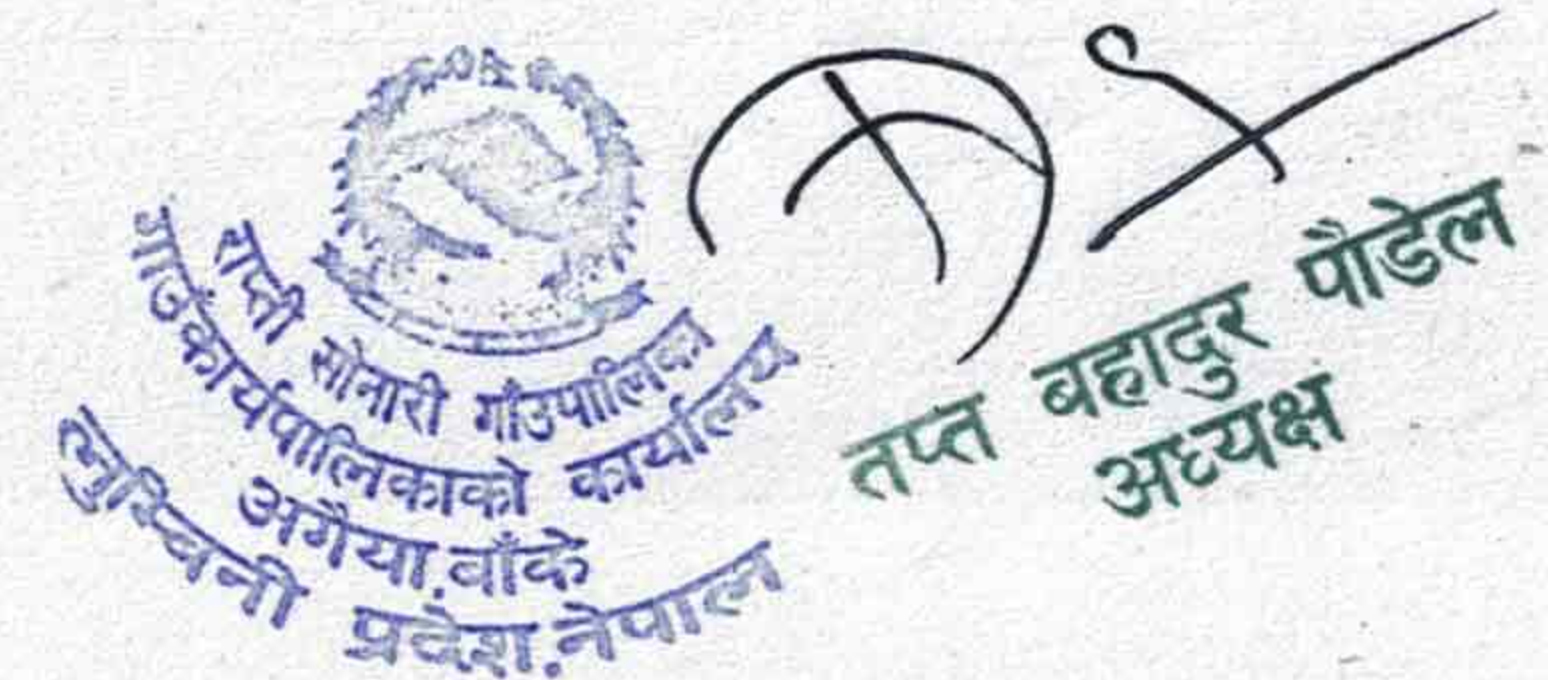 राप्ती सोनारी गाँउपालिका
गाउँकार्यपालिकाको कार्यालय
अगैया,बाँके
लुम्बिनी प्रदेश,नेपाल
तप्त बहादुर पौडेल
अध्यक्ष